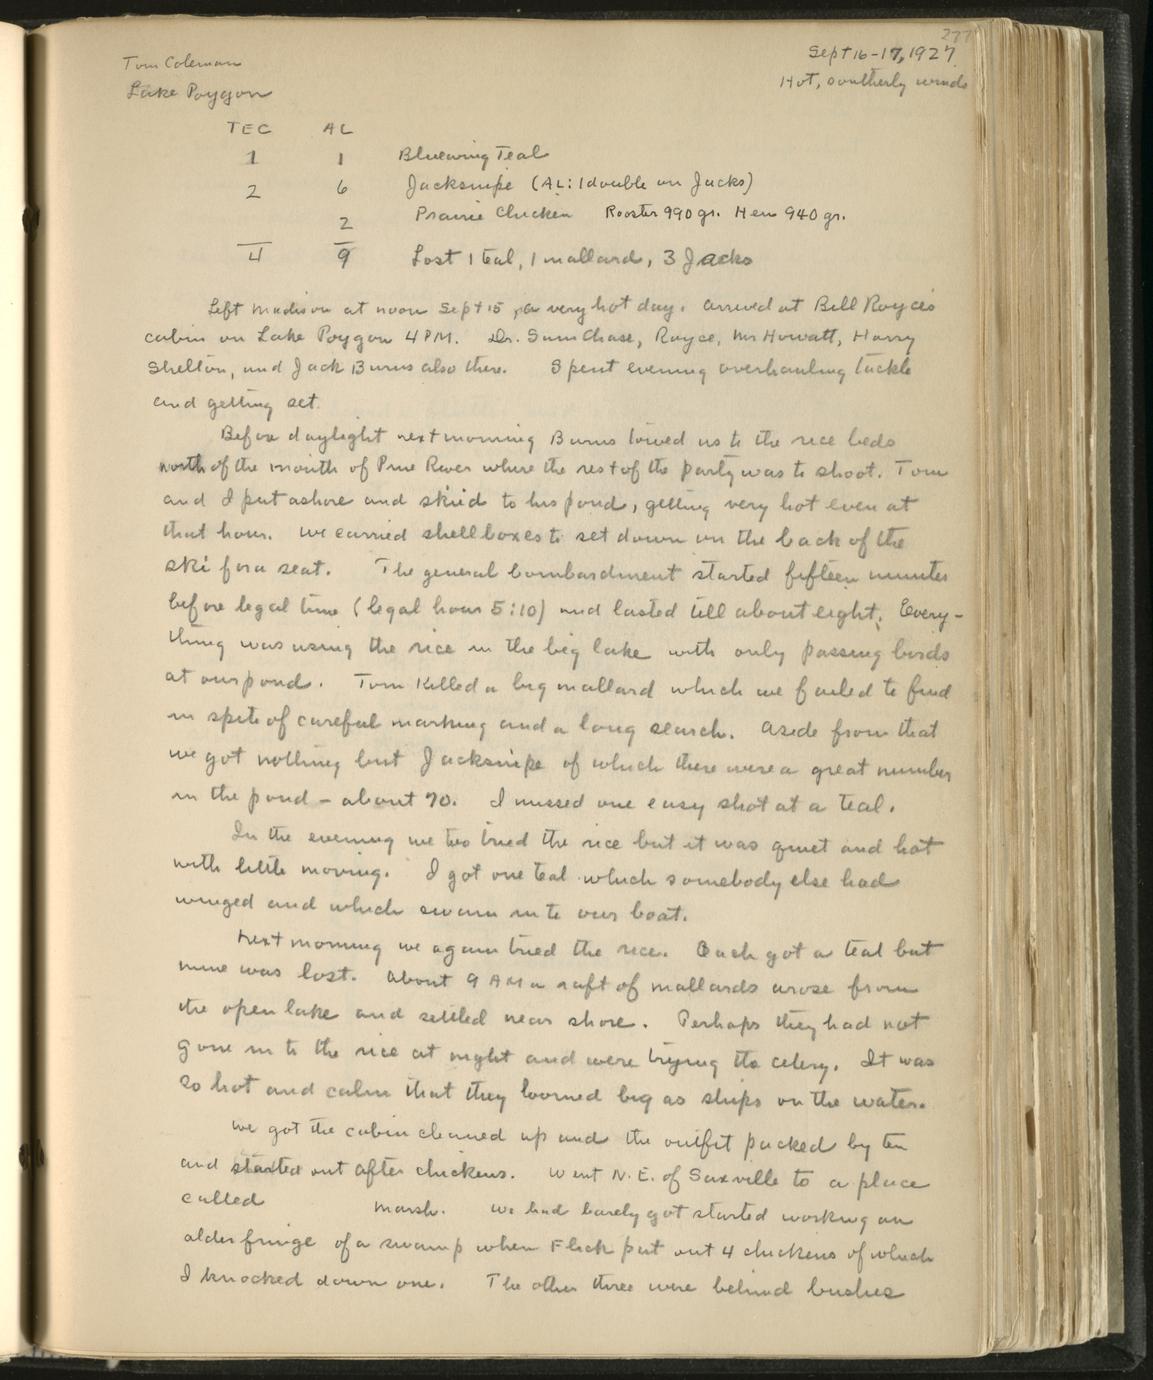 277
Tom Coleman
Sept 16-17, 1927
Lake Poygan
Hot, southerly winds
TEC AL
1 1 Bluewing Teal
2 6 Jacksnipe (AL: 1 double on Jacks)
2 Prairie Chicken Rooster 990 gr. Hen 940 gr.
4 9 Lost 1 teal, 1 mallard, 3 Jacks
Left Madison at noon Sept 15, a very hot day. Arrived at Bill Royce's
cabin on Lake Poygan 4 PM. Dr. Sam Chase, Royce, Mr Howatt, Harry
Shelton, and Jack Burns also there. Spent evening overhauling tackle
and getting set.
Before daylight next morning Burns towed us to the rice beds
north of the mouth of Pine River where the rest of the party was to shoot. Tom
and I put ashore and skiid to his pond, getting very hot even at
that hour. We carried shellboxes to set down on the back of the
ski for a seat. The general bombardment started fifteen minutes
before legal time (legal hour 5:10) and lasted till about eight. Every-
thing was using the rice in the big lake with only passing birds
at our pond. Tom killed a big mallard which we failed to find
in spite of careful marking and a long search. Aside from that
we got nothing but Jacksnipe of which there were a great number
in the pond - about 70. I missed one easy shot at a teal.
In the evening we two tried the rice but it was quiet and hot
with little moving. I got one teal which somebody else had
winged and which swam into our boat.
Next morning we again tried the rice. Each got a teal but
mine was lost. About 9 AM a raft of mallards arose from
the open lake and settled near shore. Perhaps they had not
gone in to the rice at night and were trying the celery. It was
so hot and calm that they loomed big as ships on the water.
We got the cabin cleaned up and the outfit packed by ten
and started out after chickens. Went N.E. of Saxville to a place
called marsh. We had barely got started working an
alder fringe of a swamp when Flick put out 4 chickens of which
I knocked down one. The other three were behind bushes